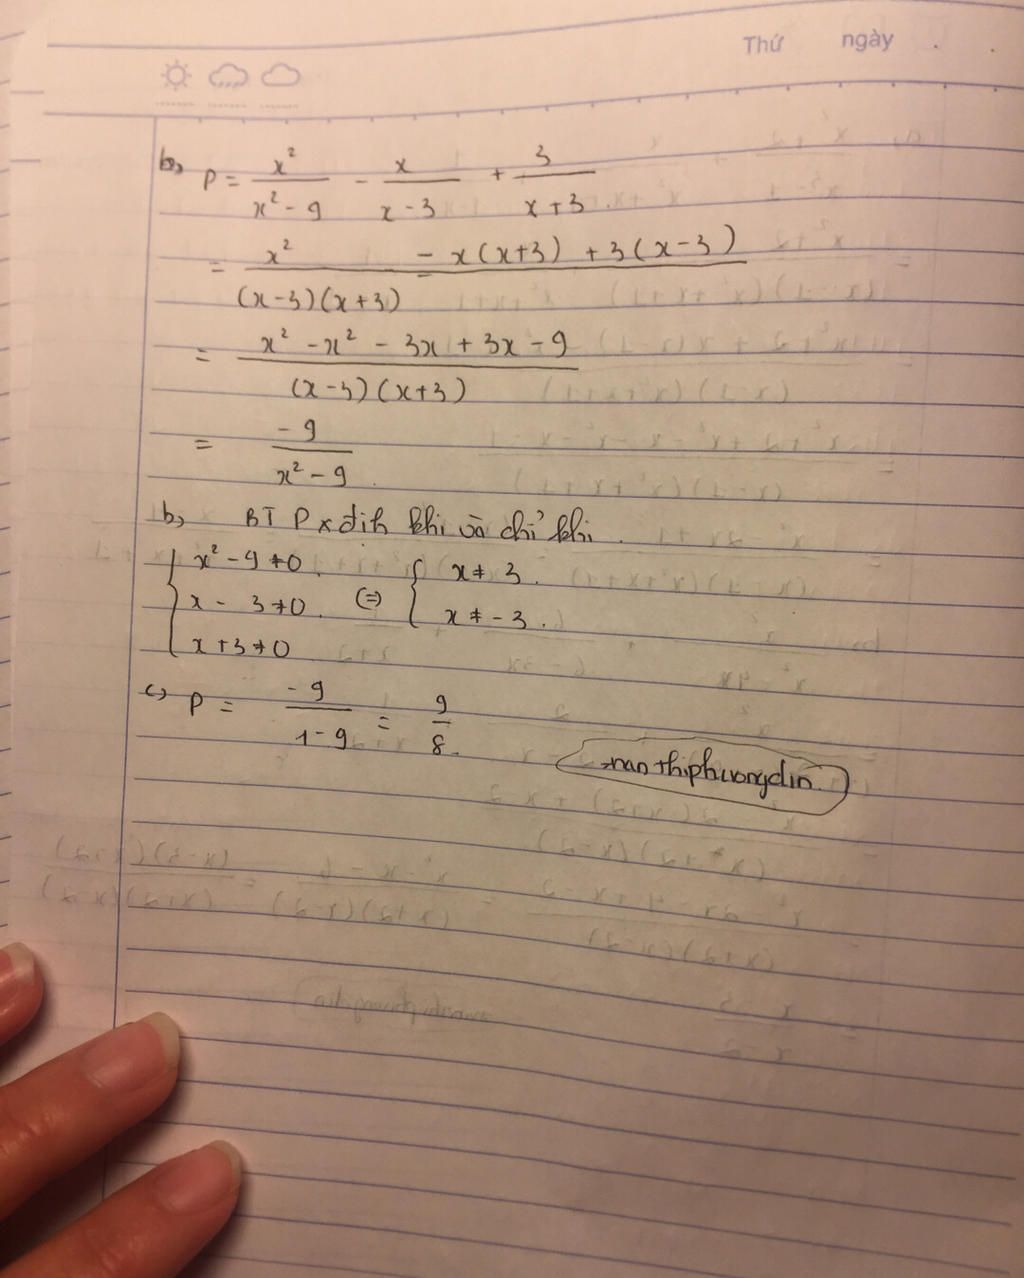 Thứ ngày
b, P = x²/(x² - 9) - x/(x - 3) + 3/(x + 3).
= (x² - x(x+3) + 3(x-3))/((x-3)(x+3))
= (x² - x² - 3x + 3x - 9)/((x-3)(x+3))
= -9/(x² - 9).
b, BT P x định khi và chỉ khi.
{ x² - 9 ≠ 0. x - 3 ≠ 0. x + 3 ≠ 0 (=) { x ≠ 3. x ≠ -3.
c, P = -9/(1-9) = 9/8.